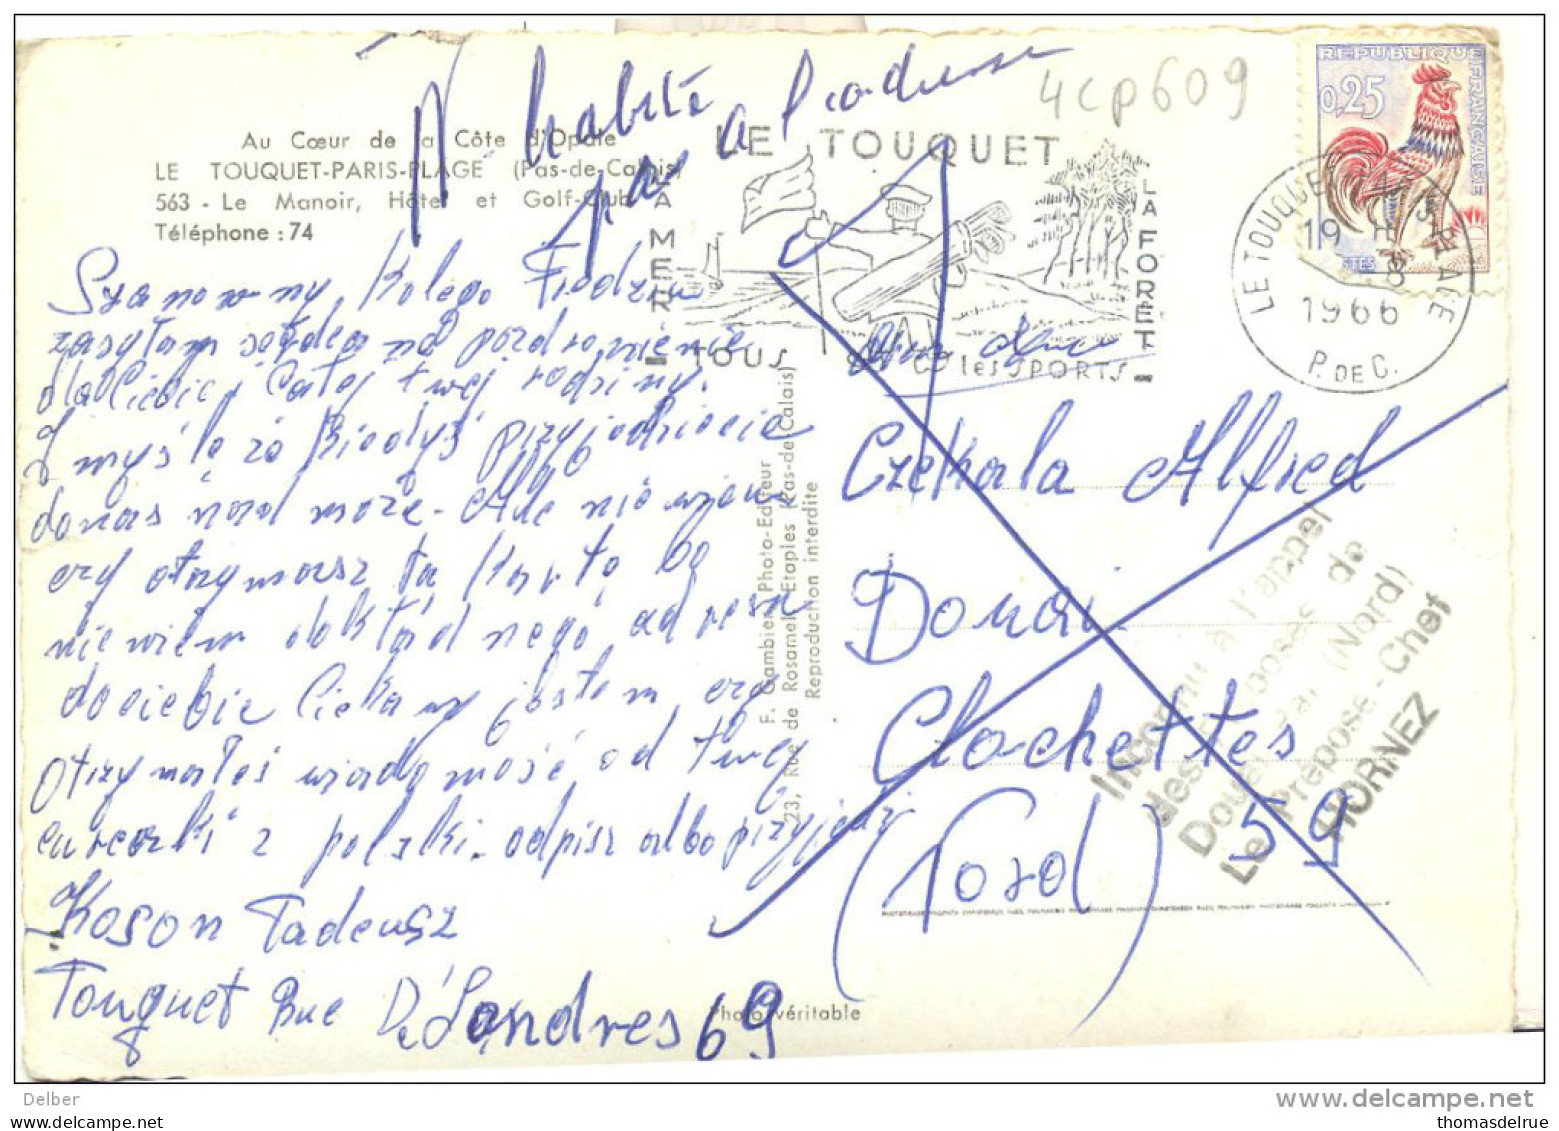 N'habite
pas à l'adresse
4cp609
Au Cœur de la Côte d'Opale
LE TOUQUET-PARIS-PLAGE (Pas-de-Calais)
563 - Le Manoir, Hôtel et Golf-Club
Téléphone : 74
LE TOUQUET
LA MER
LA FORET
TOUS les SPORTS
REPUBLIQUE FRANÇAISE
0,25
POSTES
LE TOUQUET PARIS-PLAGE
19 H
8
1966
P. DE C.
Szanowny Kolego Fredziu
zasyłam serdeczne pozdrowienie
dla Ciebie i całej twej rodziny.
I myślę że Kiedyś przyjedziecie
do nas nad może. Ale nie wiem
czy otrzymasz tą Kartę bo
nie wiem dokładnego adresu
do ciebie Ciekawy jestem czy
otrzymałeś wiadomość od twej
cureczki z polski. odpisz albo przyjedź
Koson Tadeusz
Touquet Rue De Londres 69
F. Gambier Photo-Editeur
23, Rue de Rosamel Etaples (Pas-de-Calais)
Reproduction interdite
Photo véritable
Czekala Alfred
Douai
Clochettes
(Nord) 59
Inconnu à l'appel
des Préposés de
Douai (Nord)
Le Préposé-Chef
HORNEZ
Delber
delcampe.net
thomasdelrue